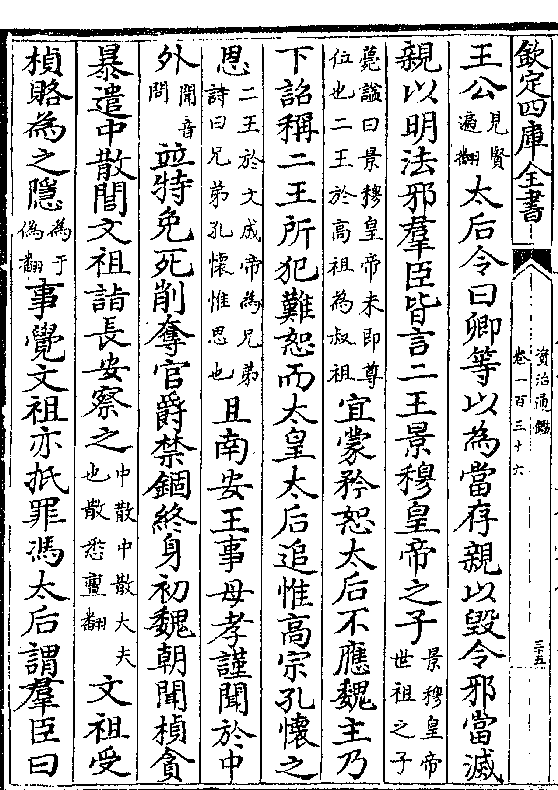 欽定四庫全書
資治通鑑
卷一百三十六
三十五
王公見賢遍翻太后令曰卿等以為當存親以毀令邪當滅
親以明法邪羣臣皆言二王景穆皇帝之子景穆皇帝世祖之子
薨諡曰景穆皇帝未即尊位也二王於高祖為叔祖宜蒙矜恕太后不應魏主乃
下詔稱二王所犯難恕而太皇太后追惟高宗孔懷之
恩二王於文成帝為兄弟詩曰兄弟孔懷惟思也且南安王事母孝謹聞於中
外聞音問竝特免死削奪官爵禁錮終身初魏朝聞楨貪
暴遣中散閭文祖詣長安察之中散中散大夫也散悉亶翻文祖受
楨賂為之隱為于偽翻事覺文祖亦抵罪馮太后謂羣臣曰